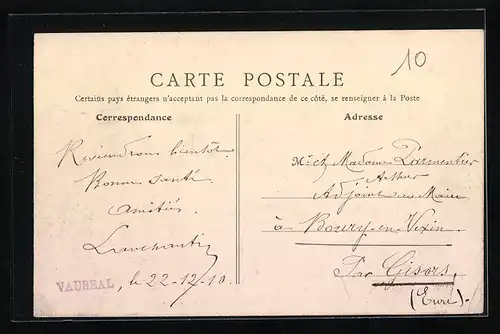 10
CARTE POSTALE
Certains pays étrangers n'acceptant pas la correspondance de ce côté, se renseigner à la Poste
Correspondance
Reviendrons bientôt.
Bonne santé
amitiés.
VAUREAL, le 22-12-10.
Adresse
Mr et Madame Parmentier
Arthur
Adjoint au Maire
à Boury-en-Vexin
Par Gisors,
(Eure)